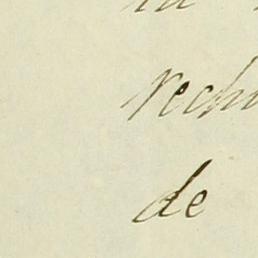 rech
de